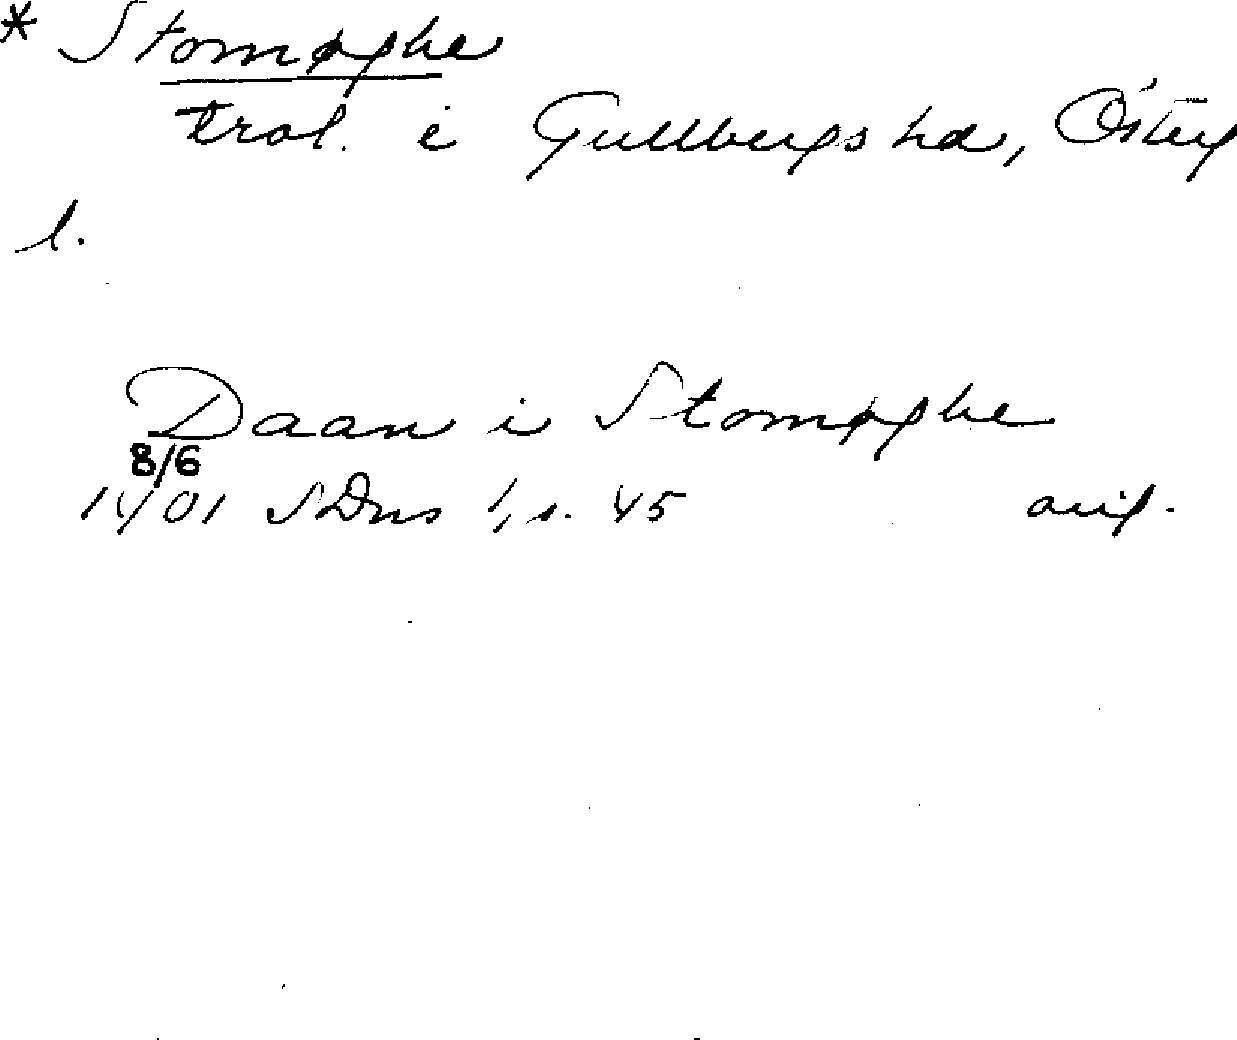 * Stomøghe
trol. i Gullbergs hd, Österg
l.
Daan i Stomøghe
8/6
1401 SDns 1, s. 45 orig.